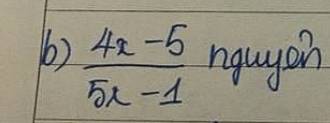 b) (4x - 5)/(5x - 1) nguyên